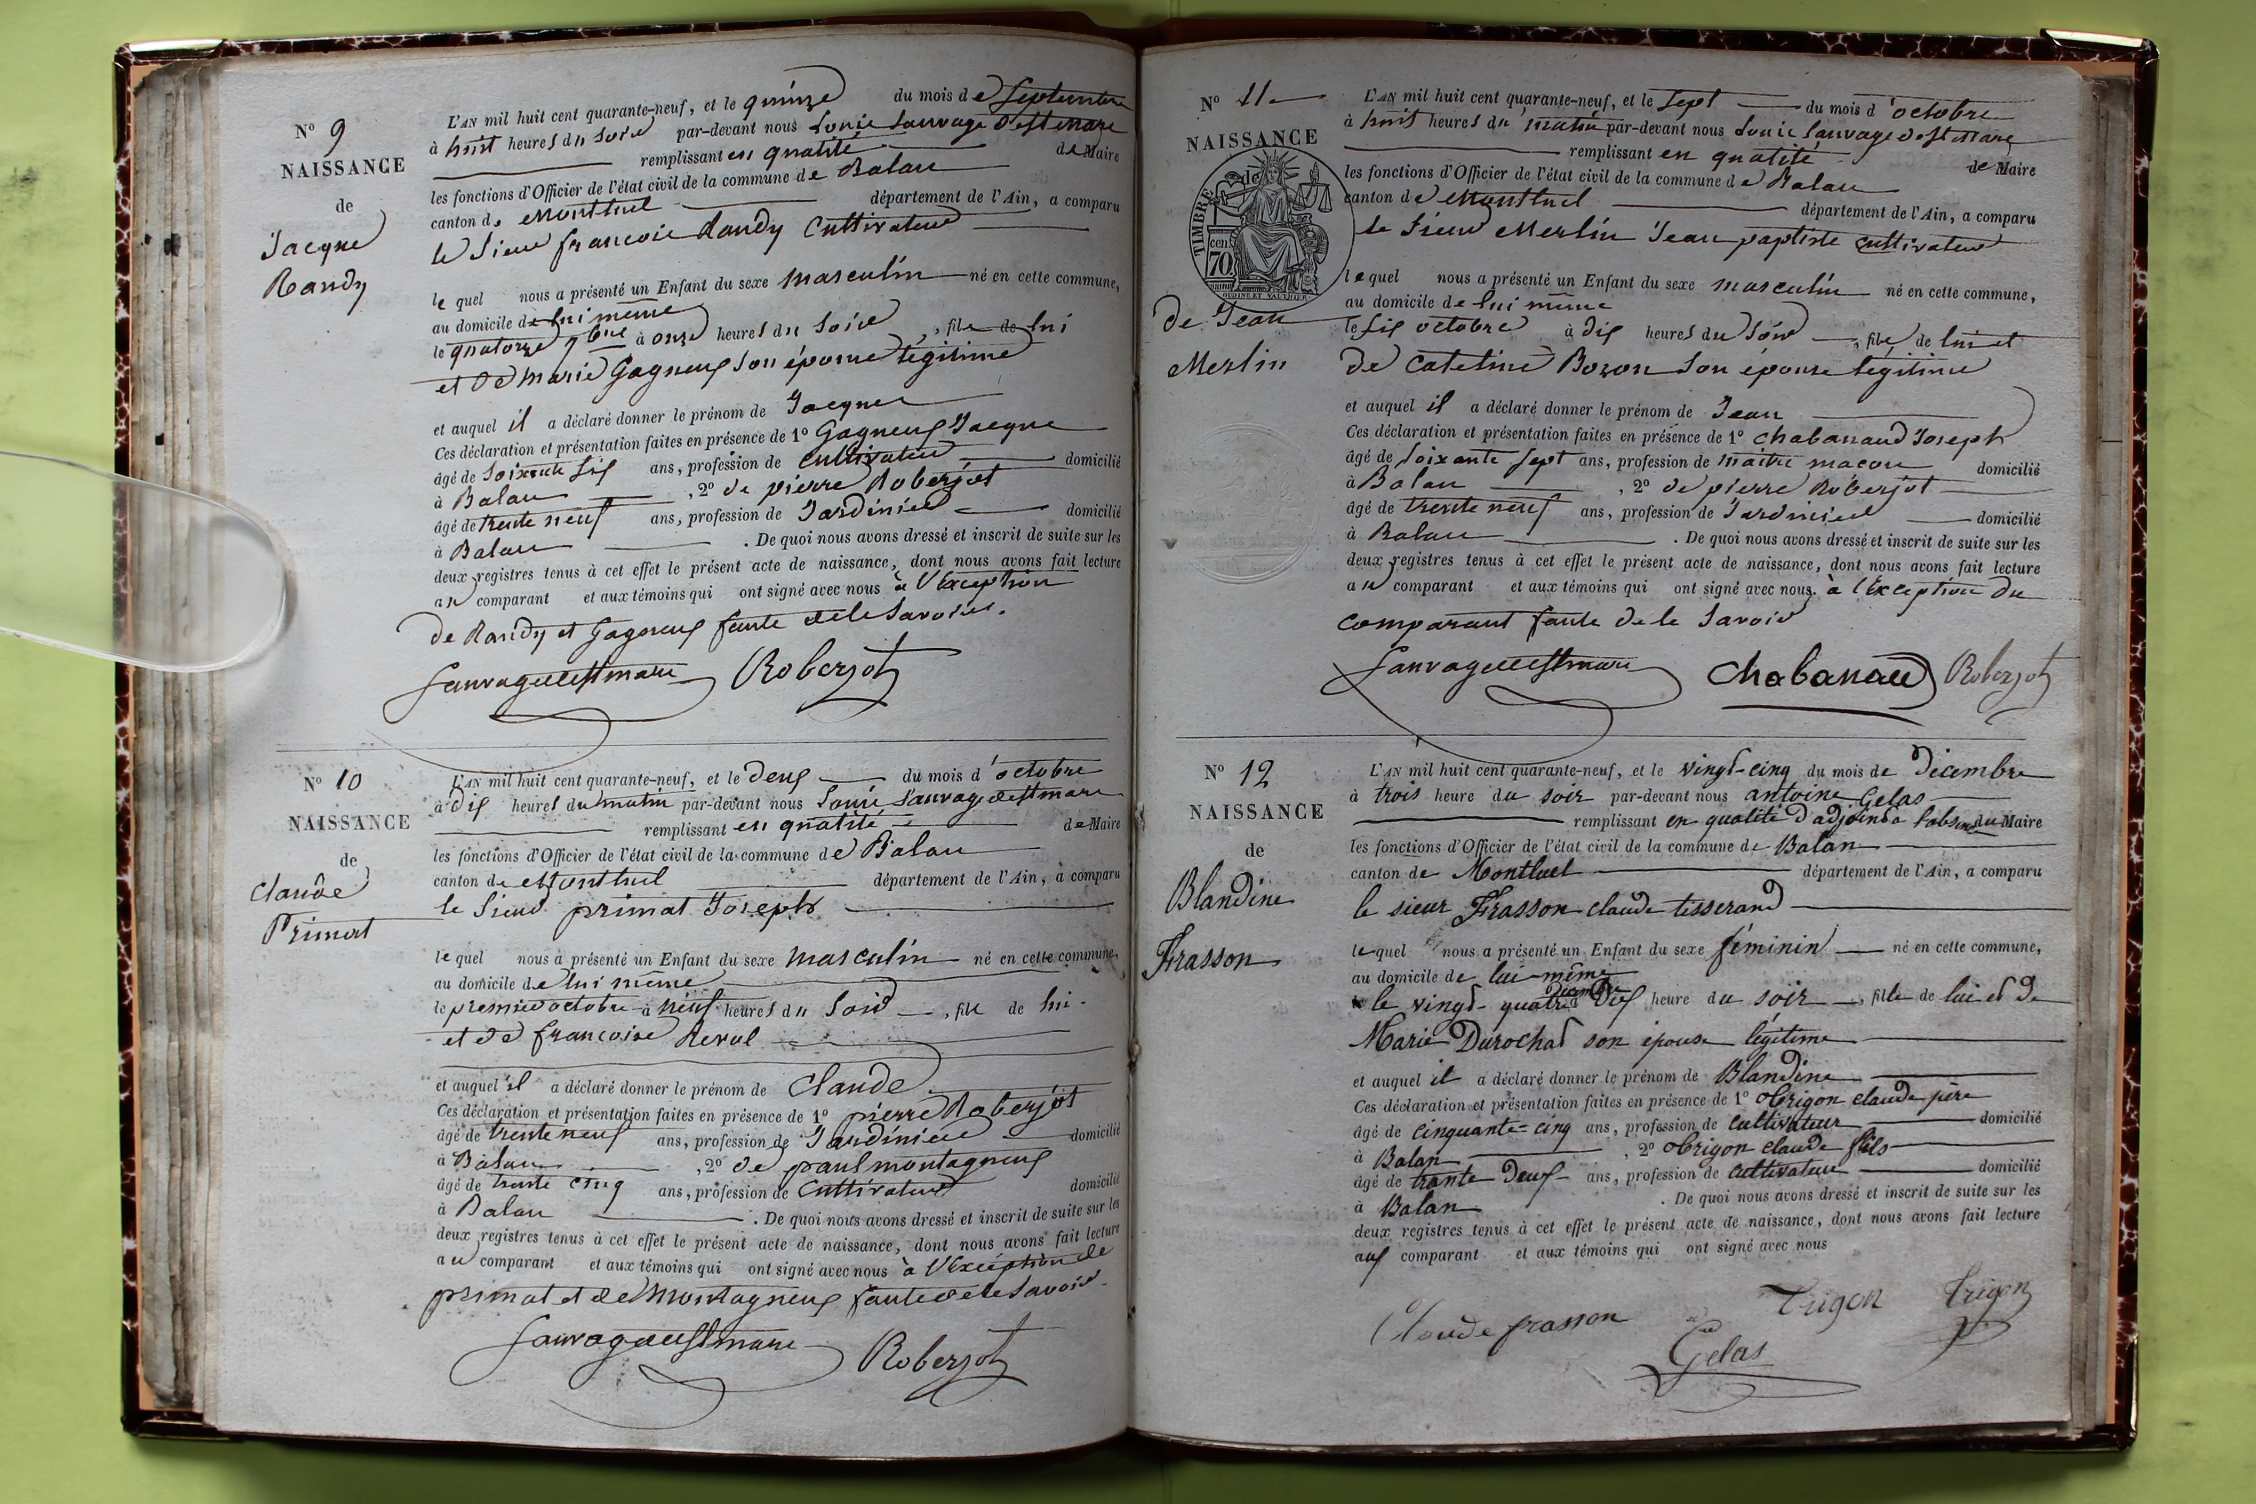 N° 9
NAISSANCE
de
Jacque
Randy
L'AN mil huit cent quarante-neuf, et le quinze du mois de Septembre
à huit heures du soir par-devant nous Louis Sauvage Destmare
remplissant en qualité de Maire
les fonctions d'Officier de l'état civil de la commune de Balan
canton de Montluel département de l'Ain, a comparu
le Sieur françois Randy Cultivateur
le quel nous a présenté un Enfant du sexe masculin né en cette commune,
au domicile de lui même
le quatorze 7bre à onze heures du soir, fils de lui
et de marie Gagneux son épouse légitime
et auquel il a déclaré donner le prénom de Jacque
Ces déclaration et présentation faites en présence de 1° Gagneux Jacque
âgé de soixante six ans, profession de cultivateur domicilié
à Balan, 2° de pierre Roberjot
âgé de trente neuf ans, profession de Jardinier domicilié
à Balan. De quoi nous avons dressé et inscrit de suite sur les
deux registres tenus à cet effet le présent acte de naissance, dont nous avons fait lecture
au comparant et aux témoins qui ont signé avec nous à l'éxception
de Randy et Gagneux faute de le savoir.
Sauvagedestmare Roberjot
N° 10
NAISSANCE
de
Claude
Primat
L'AN mil huit cent quarante-neuf, et le deux du mois d'octobre
à dix heures du matin par-devant nous Louis Sauvage destmare
remplissant en qualité de Maire
les fonctions d'Officier de l'état civil de la commune de Balan
canton de Montluel département de l'Ain, a comparu
le Sieur primat Joseph
le quel nous a présenté un Enfant du sexe masculin né en cette commune,
au domicile de lui même
le premier octobre à neuf heures du Soir, fils de lui
et de françoise Reval
et auquel il a déclaré donner le prénom de Claude
Ces déclaration et présentation faites en présence de 1° pierre Roberjot
âgé de trente neuf ans, profession de Jardinier domicilié
à Balan, 2° de paul montagneux
âgé de trente cinq ans, profession de Cultivateur domicilié
à Balan. De quoi nous avons dressé et inscrit de suite sur les
deux registres tenus à cet effet le présent acte de naissance, dont nous avons fait lecture
au comparant et aux témoins qui ont signé avec nous à l'éxception de
primat et de Montagneux faute de le savoir
Sauvagedestmare Roberjot
N° 11
NAISSANCE
de
TIMBRE
cen.
70.
OUDINE ET VAUTHIER
de Jean
Merlin
L'AN mil huit cent quarante-neuf, et le Sept du mois d'octobre
à huit heures du matin par-devant nous Louis Sauvage destmare
remplissant en qualité de Maire
les fonctions d'Officier de l'état civil de la commune de Balan
canton de Montluel département de l'Ain, a comparu
le Sieur Merlin Jean paptiste cultivateur
le quel nous a présenté un Enfant du sexe masculin né en cette commune,
au domicile de lui même
le six octobre à dix heures du soir, fils de lui et
de Cateline Bozon son épouse légitime
et auquel il a déclaré donner le prénom de Jean
Ces déclaration et présentation faites en présence de 1° chabanaud Joseph
âgé de soixante sept ans, profession de maitre maçon domicilié
à Balan, 2° de pierre Roberjot
âgé de trente neuf ans, profession de Jardinier domicilié
à Balan. De quoi nous avons dressé et inscrit de suite sur les
deux registres tenus à cet effet le présent acte de naissance, dont nous avons fait lecture
au comparant et aux témoins qui ont signé avec nous. à l'éxception du
comparant faute de le savoir
Sauvagedestmare Chabanaud Roberjot
N° 12
NAISSANCE
de
Blandine
Frasson
L'AN mil huit cent quarante-neuf, et le vingt-cinq du mois de Décembre
à trois heure du soir par-devant nous antoine Gelas
remplissant en qualité d'adjoind à l'absence du Maire
les fonctions d'Officier de l'état civil de la commune de Balan
canton de Montluel département de l'Ain, a comparu
le sieur Frasson claude tisserand
le quel nous a présenté un Enfant du sexe féminin né en cette commune,
au domicile de lui-même
décembre
le vingt-quatre à dix heure du soir, fille de lui et de
Marie Durochat son épouse légitime
et auquel il a déclaré donner le prénom de Blandine
Ces déclaration et présentation faites en présence de 1° Trigon claude père
âgé de cinquante-cinq ans, profession de cultivateur domicilié
à Balan, 2° Trigon claude fils
âgé de trante deux ans, profession de cultivateur domicilié
à Balan. De quoi nous avons dressé et inscrit de suite sur les
deux registres tenus à cet effet le présent acte de naissance, dont nous avons fait lecture
aux comparant et aux témoins qui ont signé avec nous
Claude frasson Trigon Trigon
Gelas